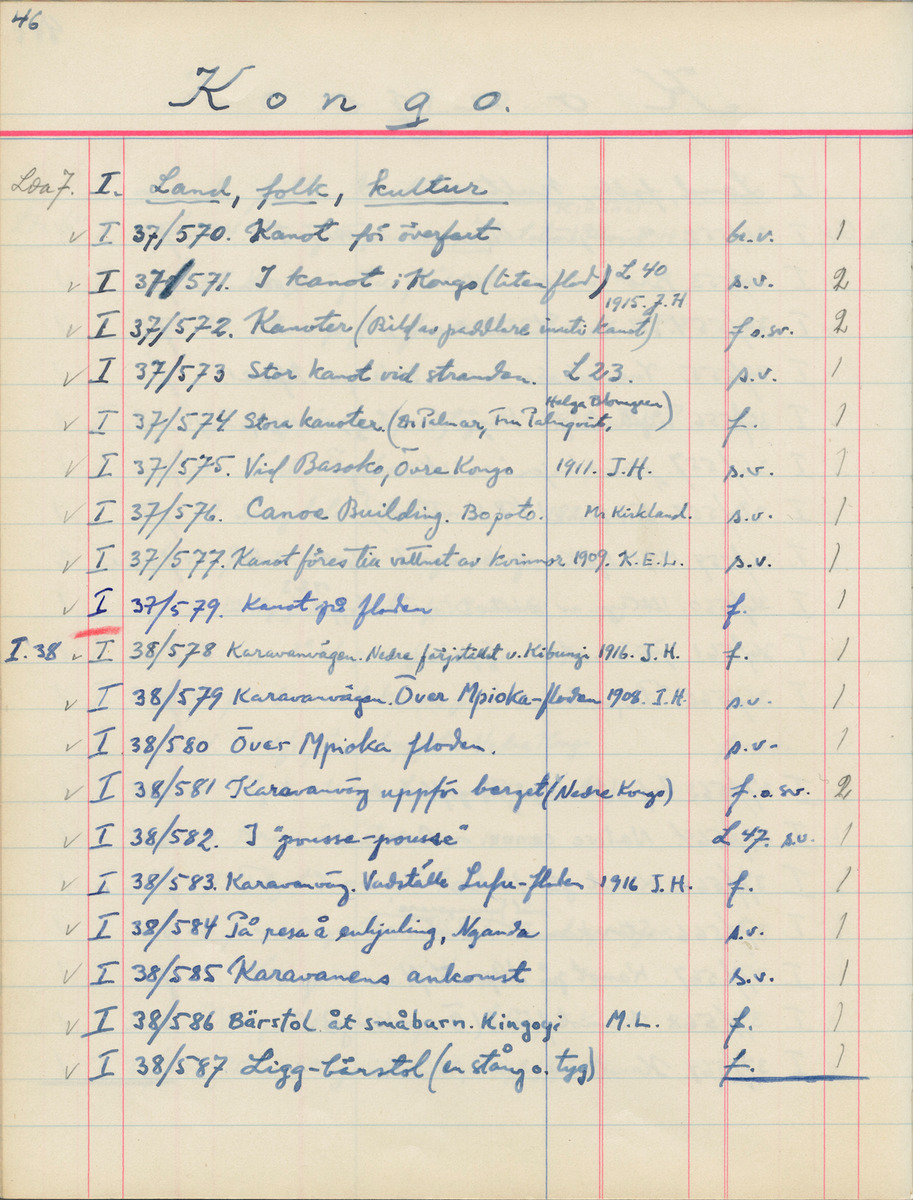 46
Kongo.
Låda 7. I. Land, folk, kultur
✓ I 37/570. Kanot för överfart br.v. 1
✓ I 37/571. I kanot i Kongo (liten flod) L 40 s.v. 2
✓ I 37/572. Kanoter (Bild av paddlare inuti kanot) 1915. J.H f. o. sv. 2
✓ I 37/573 Stor kanot vid stranden. L 23. s.v. 1
✓ I 37/574 Stora kanoter. (Dr Palmær, Fru Palmqvist, Helga Blomgren) f. 1
✓ I 37/575. Vid Basoko, Övre Kongo 1911. J.H. s.v. 1
✓ I 37/576. Canoe Building. Bopoto. Mr Kirkland. s.v. 1
✓ I 37/577. Kanot föres till vattnet av kvinnor 1909. K.E.L. s.v. 1
✓ I 37/579. Kanot på floden f. 1
I. 38 ✓ I 38/578 Karavanvägen. Nedre färjstället v. Kibunzi 1916. J.H. f. 1
✓ I 38/579 Karavanvägen. Över Mpioka-floden 1908. J.H. s.v. 1
✓ I 38/580 Över Mpioka floden. s.v. 1
✓ I 38/581 Karavanväg uppför berget (Nedre Kongo) f. o. sv. 2
✓ I 38/582. I "pousse-pousse" L 47. s.v. 1
✓ I 38/583. Karavanväg. Vadställe Lufu-floden 1916 J.H. f. 1
✓ I 38/584 På resa å enhjuling, Nganda s.v. 1
✓ I 38/585 Karavanens ankomst s.v. 1
✓ I 38/586 Bärstol åt småbarn. Kingoyi M.L. f. 1
✓ I 38/587 Ligg-bärstol (en stång o. tyg) f. 1